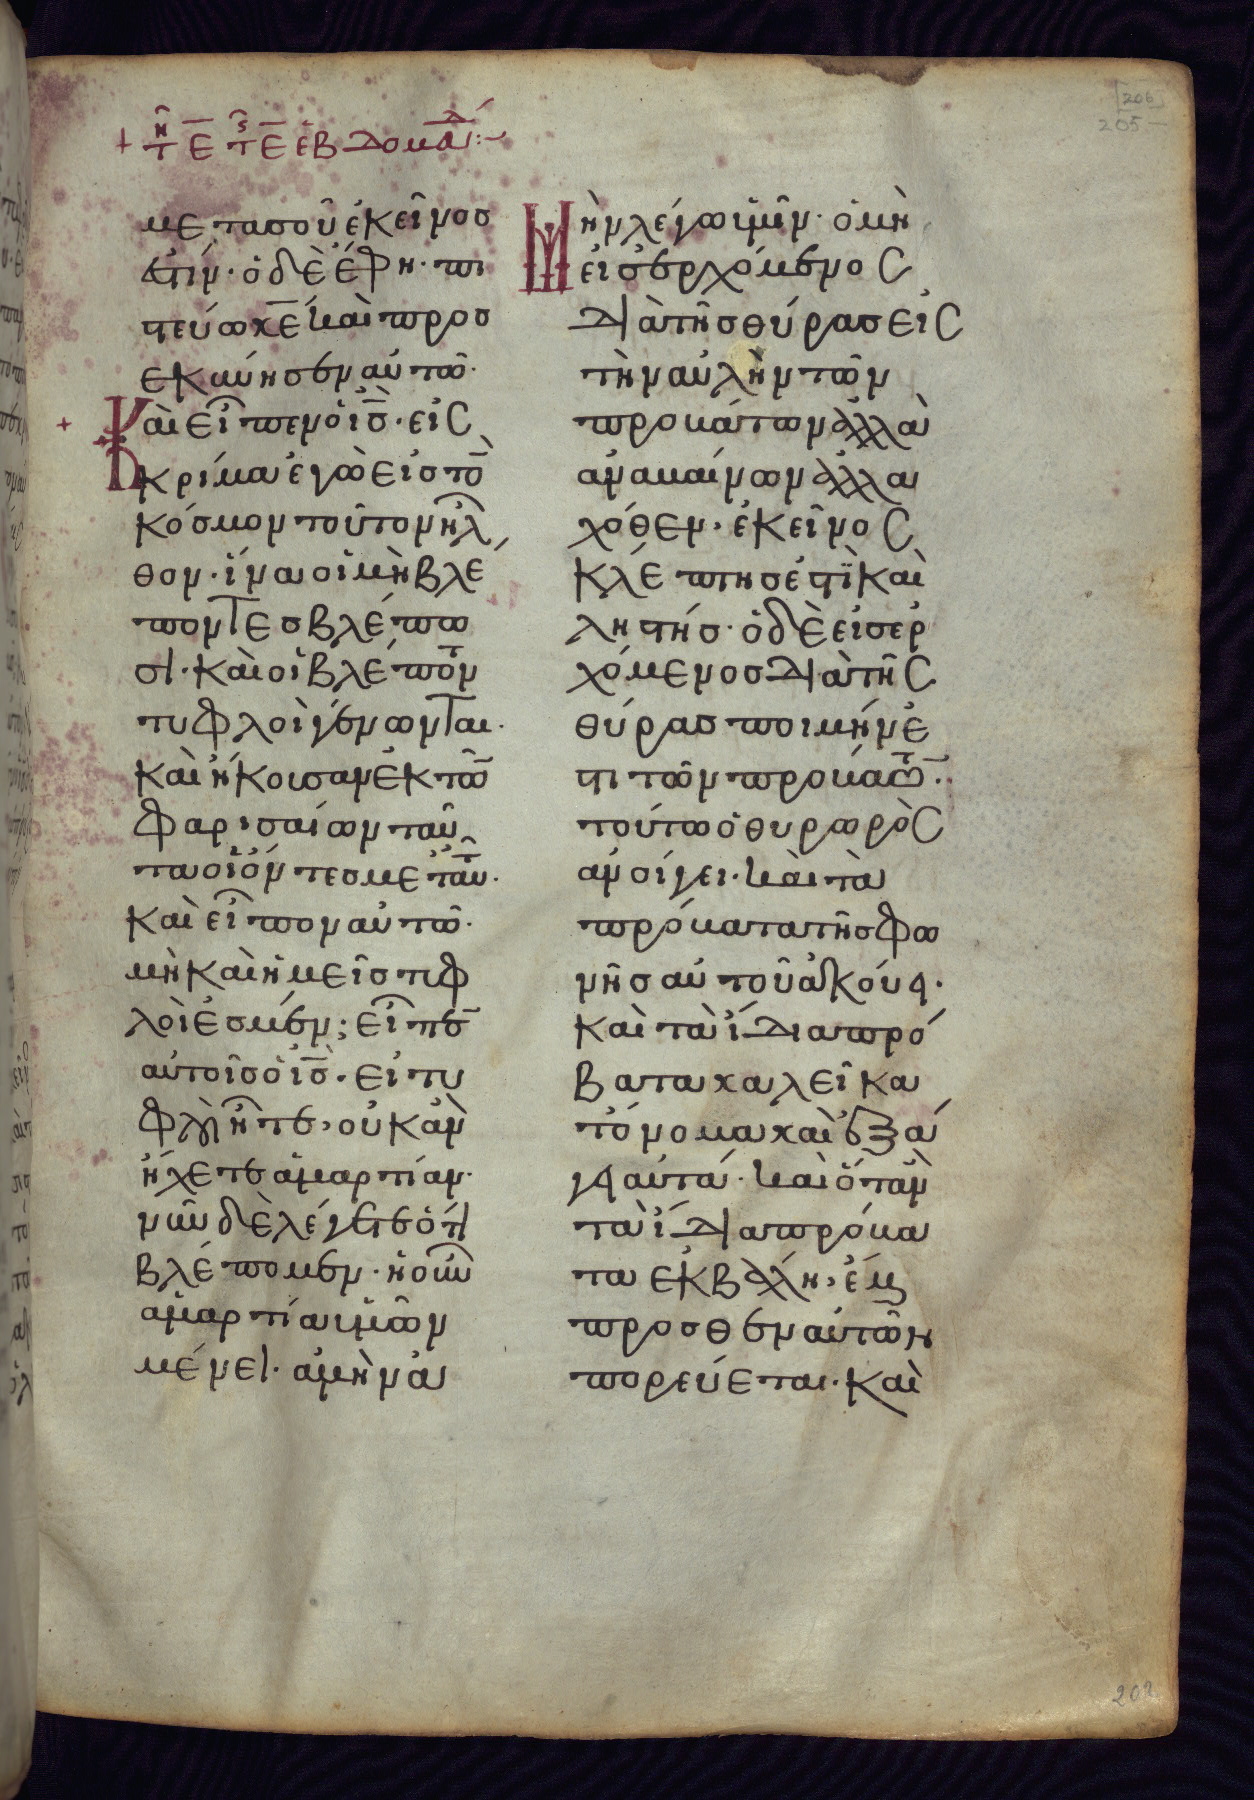 206
205
+ τῆ Ε τῆς Ε ἑβδομάδ
με τὰ σοῦ ἐκεῖνοσ
ἐστίν· ὁ δὲ ἔφη· πι
στεύω κ̅ε̅ καὶ προσ
εκύνησεν αὐτῶ·
+ Καὶ εἶπεν ὁ ι̅σ̅· εἰς
κρίμα ἐγὼ εἰσ τὸ
κόσμον τοῦτον ἦλ
θον· ἵνα οἱ μὴ βλέ
ποντεσ βλέπω
σι· καὶ οἱ βλέποντ
τυφλοὶ γένωνται·
καὶ ἤκουσαν ἐκ τῶ
φαρισαίων ταῦ
τα οἱ ὄντεσ μετ αυτ·
καὶ εἶπον αὐτῶ·
μὴ καὶ ἡμεῖσ τυφ
λοὶ ἐσμέν; εἶπε
αὐτοῖσ ὁ ι̅σ̅· εἰ τυ
φλοὶ ἦτε, οὐκ ἂν
ἤχετε ἁμαρτίαν·
νῦν δὲ λέγετε ὅτι
βλέπομεν· ἡ οὖν
ἁμαρτία ὑμῶν
μένει· ἀμὴν ἀ
μὴν λέγω ὑμῖν· ὁ μὴ
εἰσερχόμενος
διὰ τῆσ θύρασ εἰς
τὴν αὐλὴν τῶν
προβάτων ἀλλὰ
αναβαίνων ἀλλα
χόθεν· ἐκεῖνος
κλέπτησ ἐστὶ καὶ
ληστήσ· ὁ δὲ εἰσερ
χόμενοσ διὰ τῆς
θύρασ ποιμήν ἐ
στι τῶν προβάτ·
τούτω ὁ θυρωρὸς
ανοίγει· καὶ τὰ
πρόβατα τῆσ φω
νῆσ αὐτοῦ ἀκούει·
καὶ τὰ ἴδια πρό
βατα καλεῖ κα
τ ὄνομα καὶ ἐξά
γει αὐτά· καὶ ὅταν
τὰ ἴδια πρόβα
τα ἐκβάλη, ἔμ
προσθεν αὐτῶν
πορεύεται· καὶ
202